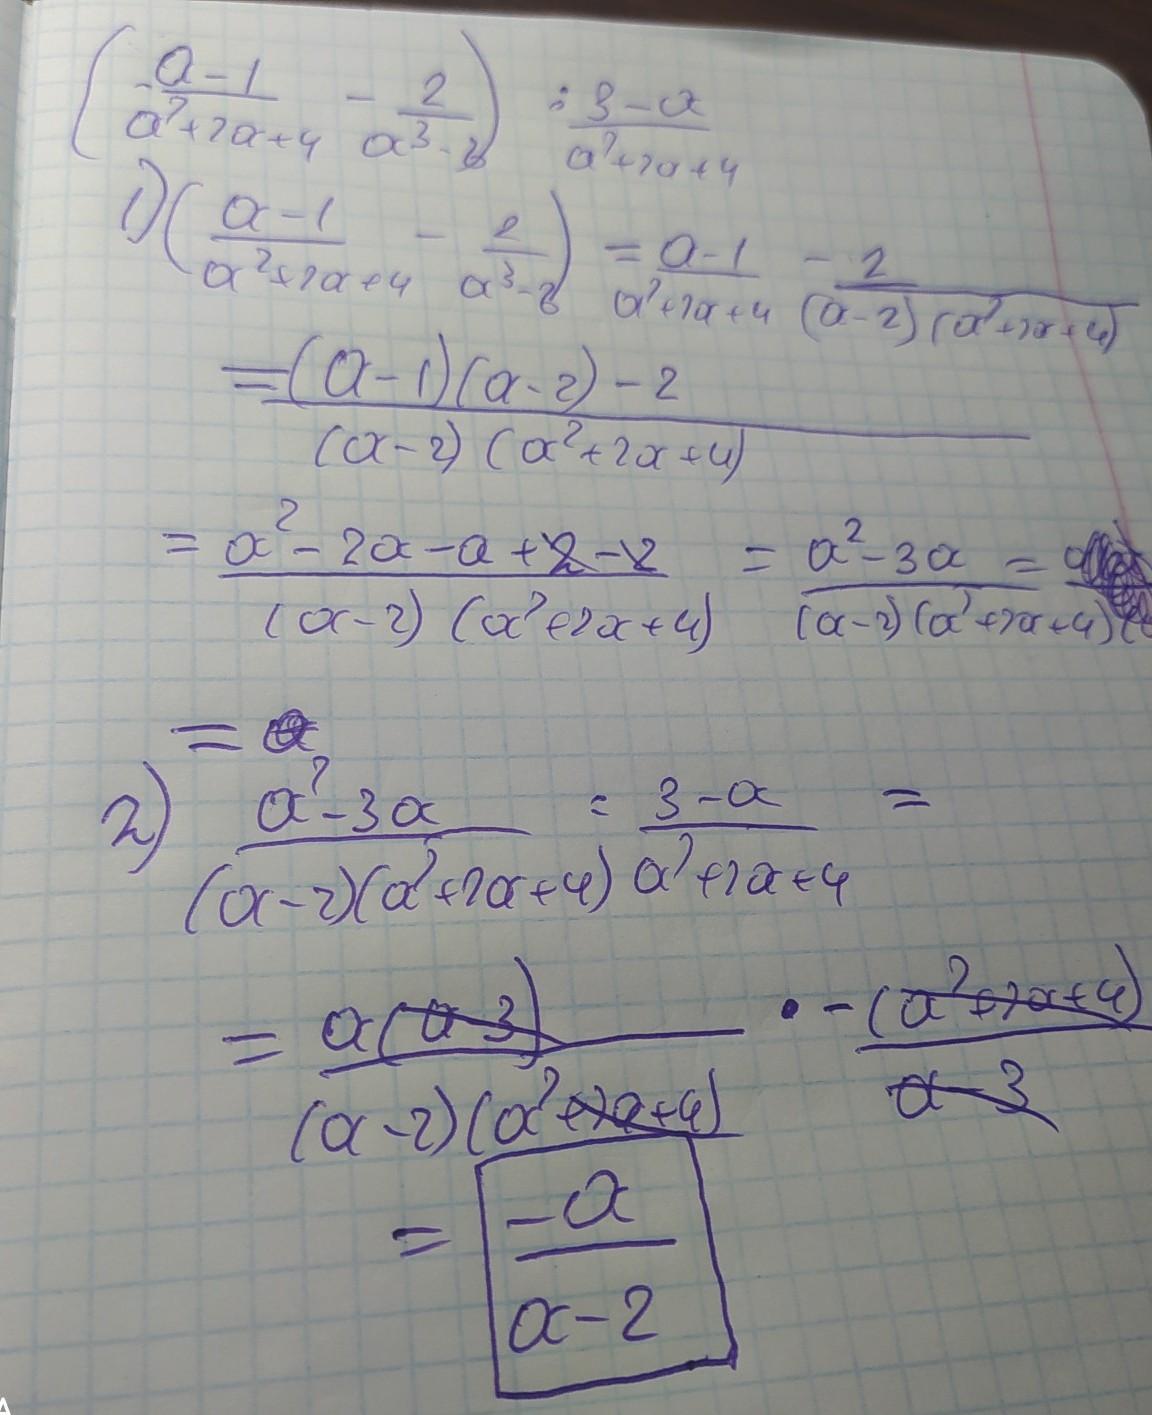 ( (a-1)/(a²+2a+4) - 2/(a³-8) ) : (3-a)/(a²+2a+4)
1) ( (a-1)/(a²+2a+4) - 2/(a³-8) ) = (a-1)/(a²+2a+4) - 2/((a-2)(a²+2a+4))
= ((a-1)(a-2)-2)/((a-2)(a²+2a+4))
= (a²-2a-a+2-2)/((a-2)(a²+2a+4)) = (a²-3a)/((a-2)(a²+2a+4)) =
= a
2) (a²-3a)/((a-2)(a²+2a+4)) : (3-a)/(a²+2a+4) =
= a(a-3)/((a-2)(a²+2a+4)) · -(a²+2a+4)/(a-3)
= -a/(a-2)